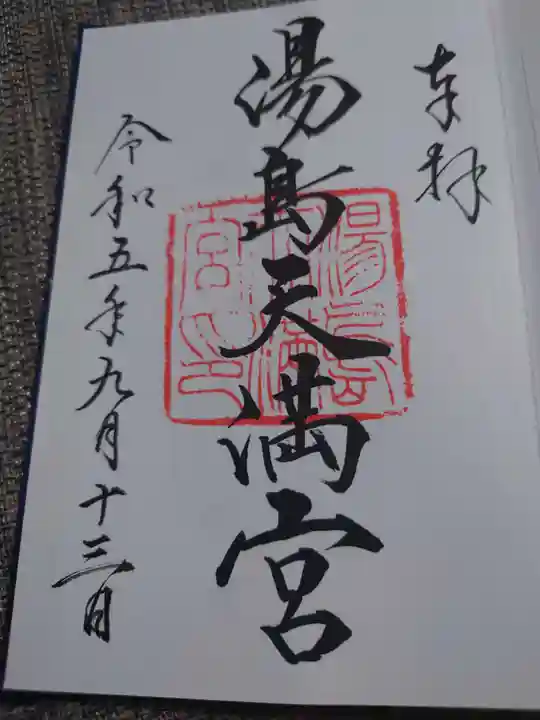 奉拝
湯島天満宮
湯島天満宮之印
令和五年九月十三日